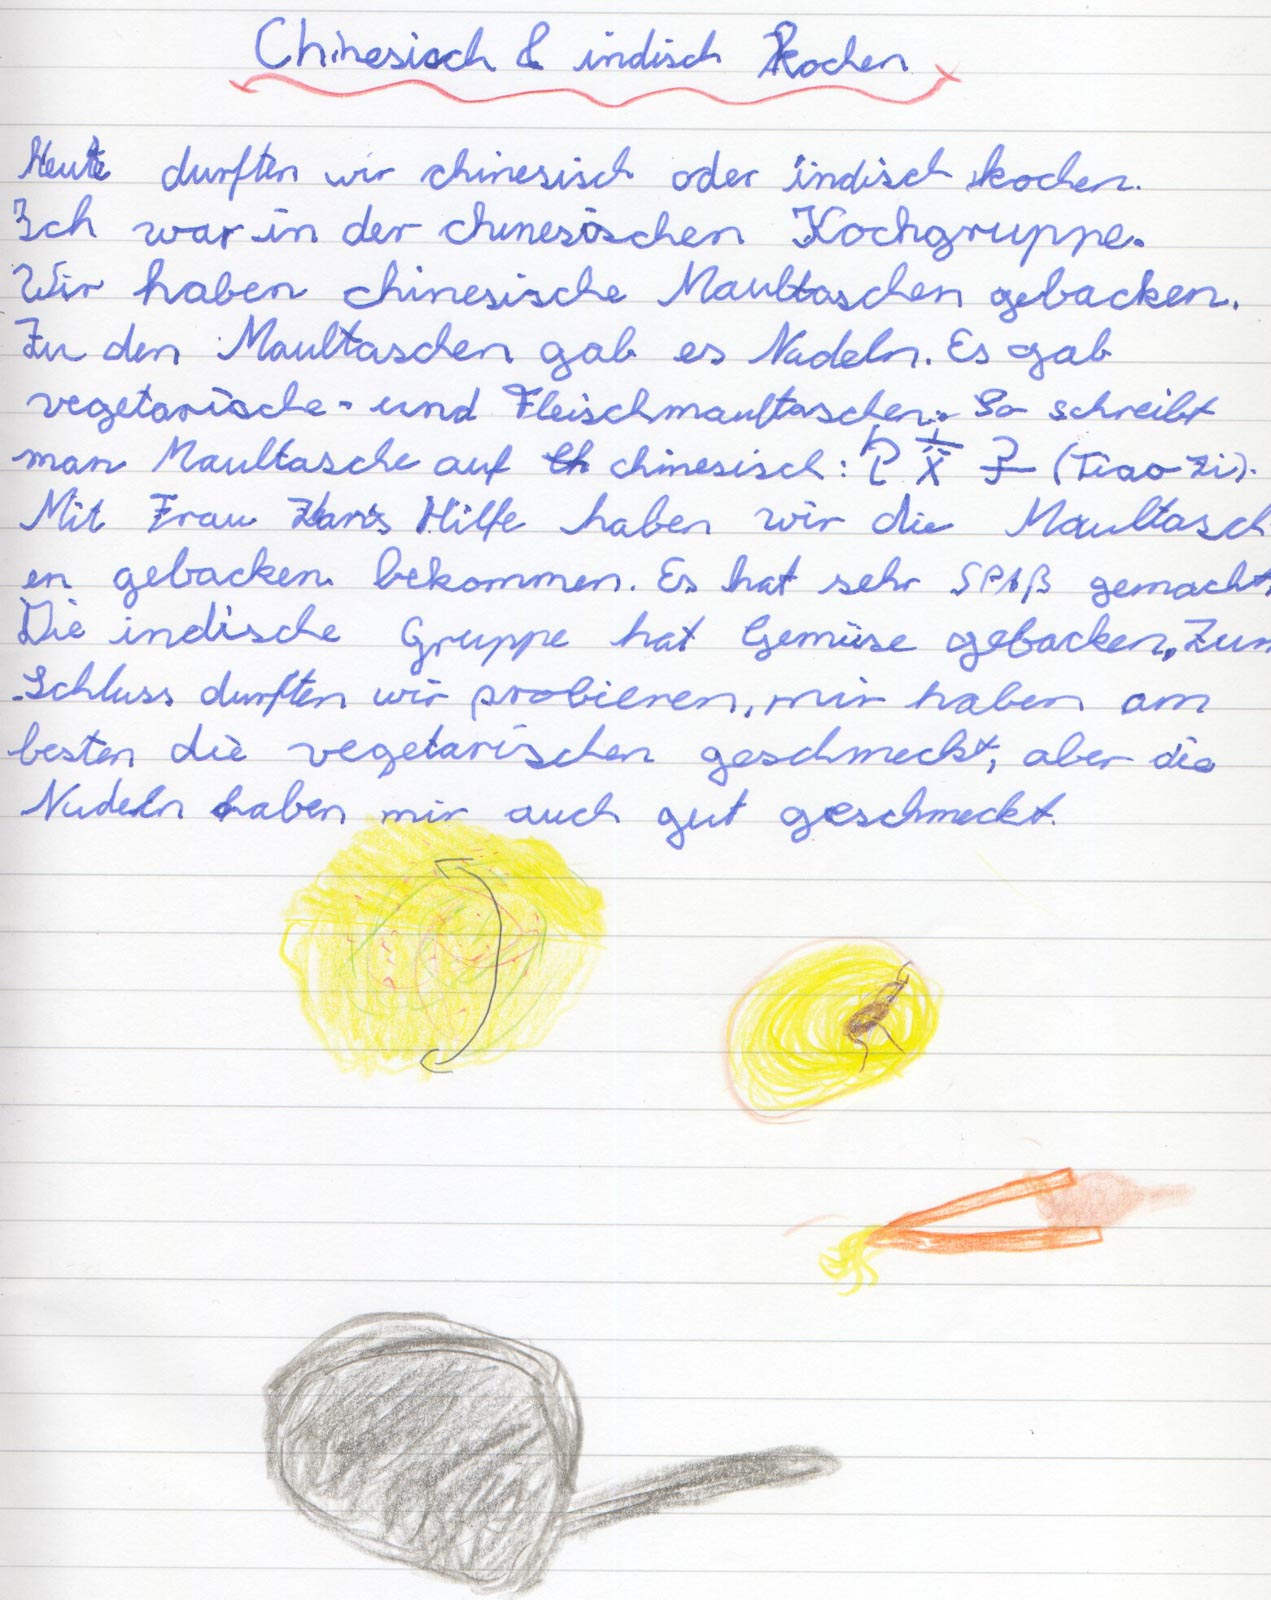 Chinesisch & indisch Kochen
Heute durften wir chinesisch oder indisch kochen.
Ich war in der chinesischen Kochgruppe.
Wir haben chinesische Maultaschen gebacken.
Zu den Maultaschen gab es Nudeln. Es gab
vegetarische- und Fleischmaultaschen. So schreibt
man Maultasche auf chinesisch: 饺子 (Tiao zi).
Mit Frau Hilfe haben wir die Maultasch
en gebacken bekommen. Es hat sehr SPAß gemacht
Die indische Gruppe hat Gemüse gebacken, Zum
Schluss durften wir probieren, mir haben am
besten die vegetarischen geschmeckt, aber die
Nudeln haben mir auch gut geschmeckt.